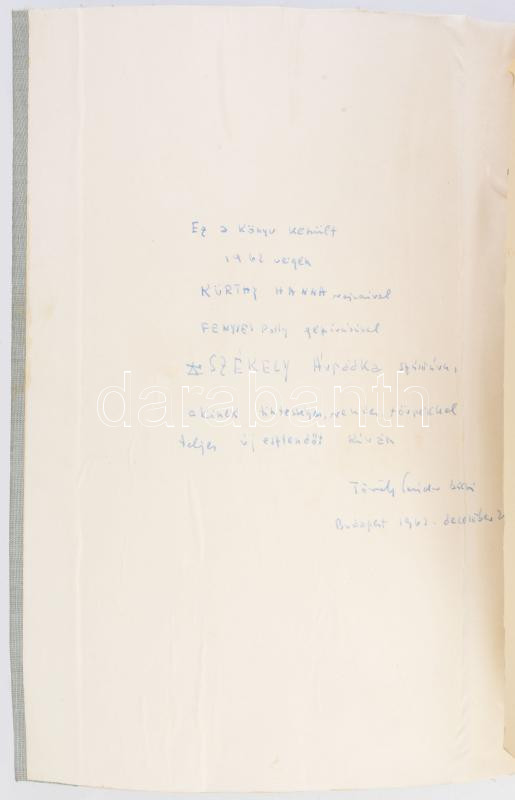 Ez a könyv készült
1962 végén
KÜRTHY HANNA rajzaival
FENYVES Polly gépírásával
SZÉKELY Árpádka számára,
darabanth
akinek
teljes új esztendőt kíván
Török Sándor bácsi
Budapest 1962. december 2